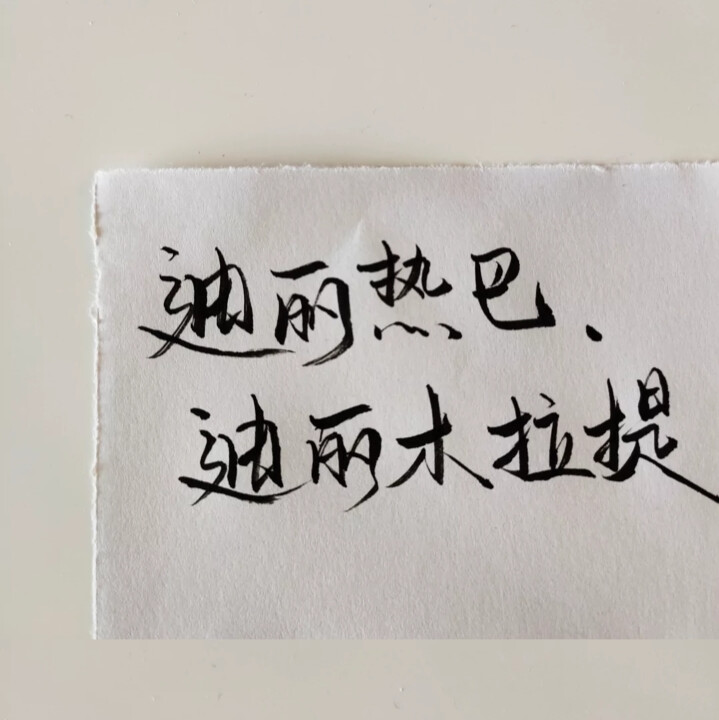 迪丽热巴.
迪丽木拉提